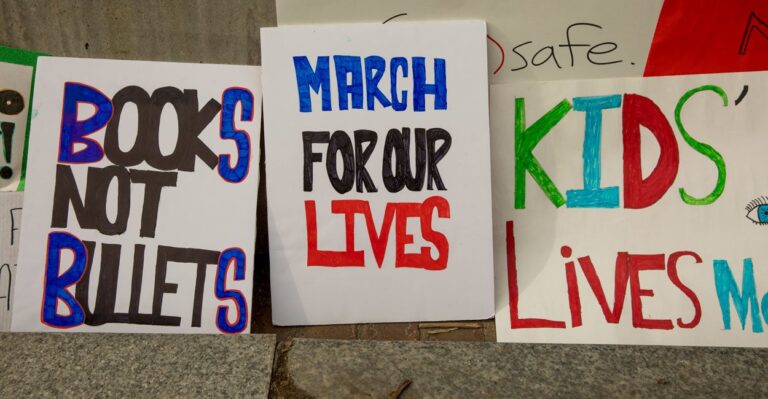 safe.
BOOKS
NOT
BULLETS
MARCH
FOR OUR
LIVES
KIDS'
LIVES